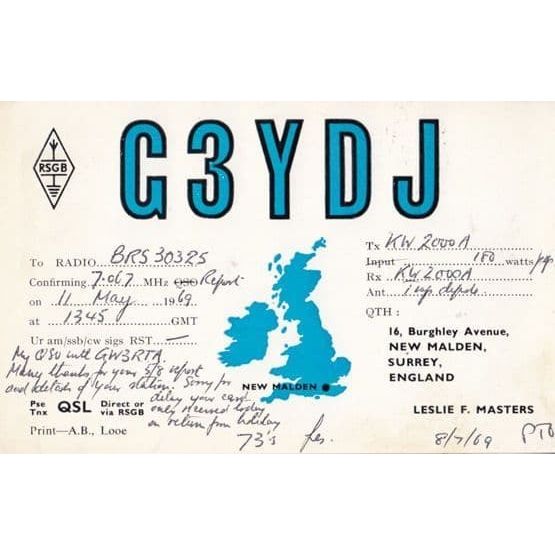 G3YDJ
RSGB
To RADIO BRS 30325
Confirming 7.067 MHz QSO Report
on 11 May 1969
at 1345 GMT
Ur am/ssb/cw sigs RST —
My QSO with GW3RTA.
Many thanks for your 5/8 report
and details of your station. Sorry for
delay your card
only received today
on return from holiday
73's Les.
Pse Tnx QSL Direct or via RSGB
Print—A.B., Looe
NEW MALDEN
Tx KW 2000A
Input 180 watts/pep
Rx KW2000A
Ant dipole
QTH :
16, Burghley Avenue,
NEW MALDEN,
SURREY,
ENGLAND
LESLIE F. MASTERS
8/7/69 PTO